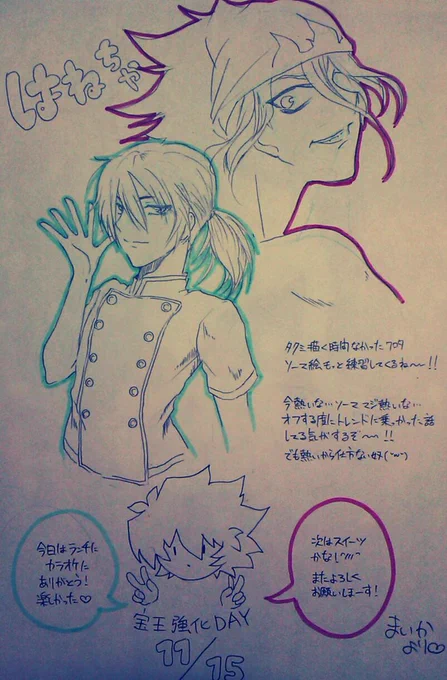 はねちゃ
タクミ描く時間なかったプロタ
ソーマ絵もっと練習してくるね〜〜!!
今熱いな…ソーマ マジ熱いな…
オフする度にトレンドに乗っかった話
してる気がするぞ〜〜!!
でも熱いから仕方ない奴(˘ω˘)
今日はランチに
カラオケに
ありがとう!
楽しかった♡
次はスイーツ
かな!
またよろしく
お願いしまーす!
宝王強化DAY
11/15
まいか
より♡